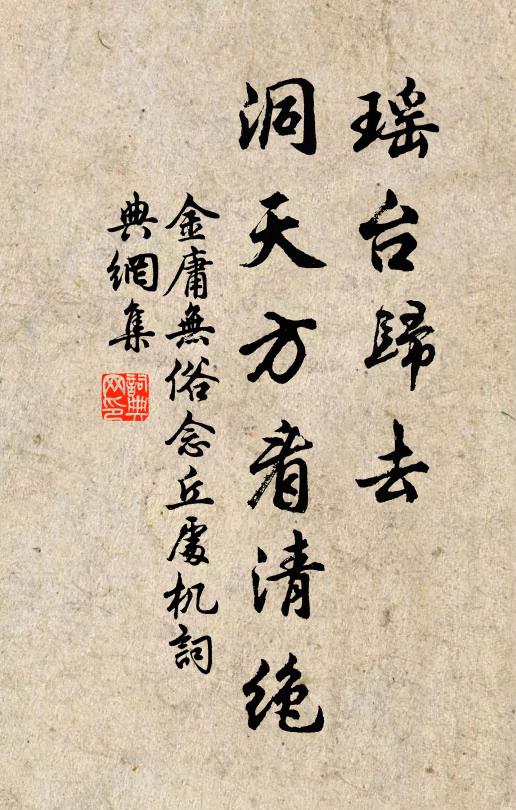 瑶台歸去
洞天方看清絶
金庸無俗念丘處机詞
典網集
詞典网印